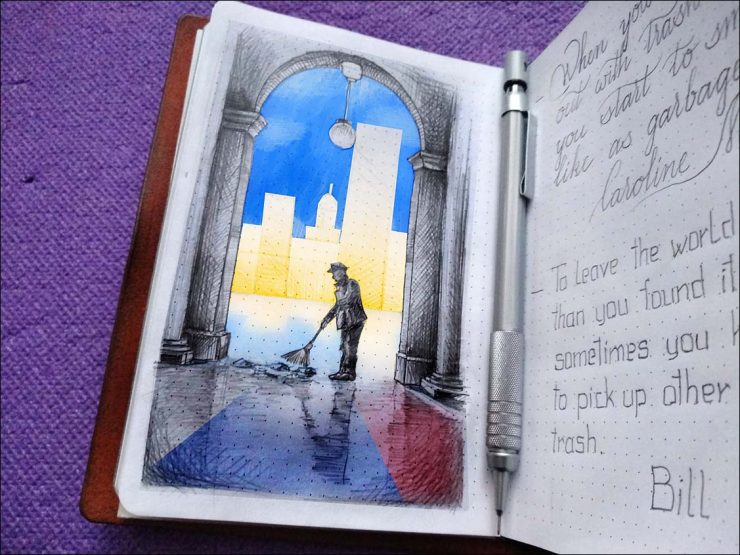 - When you
out with trash
you start to sm
like as garbage
Caroline
- To leave the world
than you found it
sometimes you
to pick up other
trash.
Bill